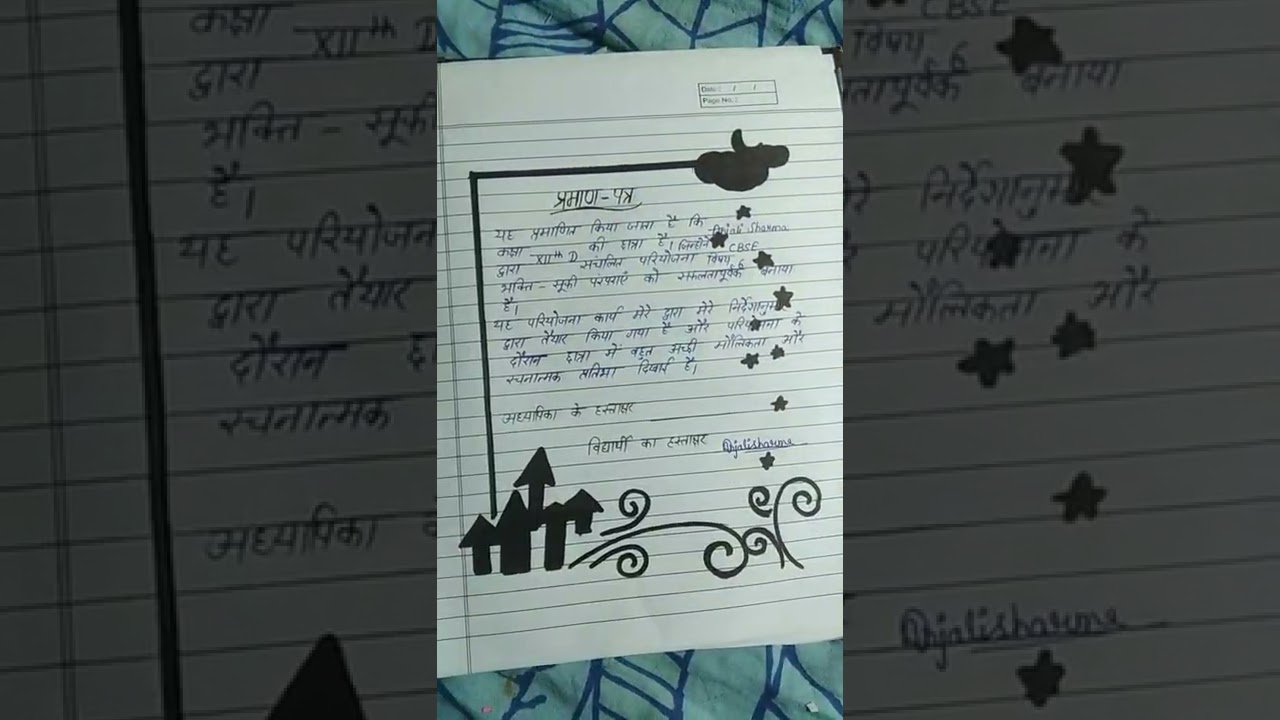 Date : / /
Page No. :
प्रमाण-पत्र
यह प्रमाणित किया जाता है कि Anjali Sharma
कक्षा XIIth D की छात्रा है। जिन्होंने CBSE
द्वारा संचलित परियोजना विषय 6
भक्ति - सूफी परंपराएं को सफलतापूर्वक बनाया
है।
यह परियोजना कार्य मेरे द्वारा मेरे निर्देशानुसार
द्वारा तैयार किया गया है और परियोजना के
दौरान छात्रा में बहुत अच्छी मौलिकता और
रचनात्मक प्रतिभा दिखाई है।
अध्यापिका के हस्ताक्षर
विद्यार्थी का हस्ताक्षर Anjalisharma